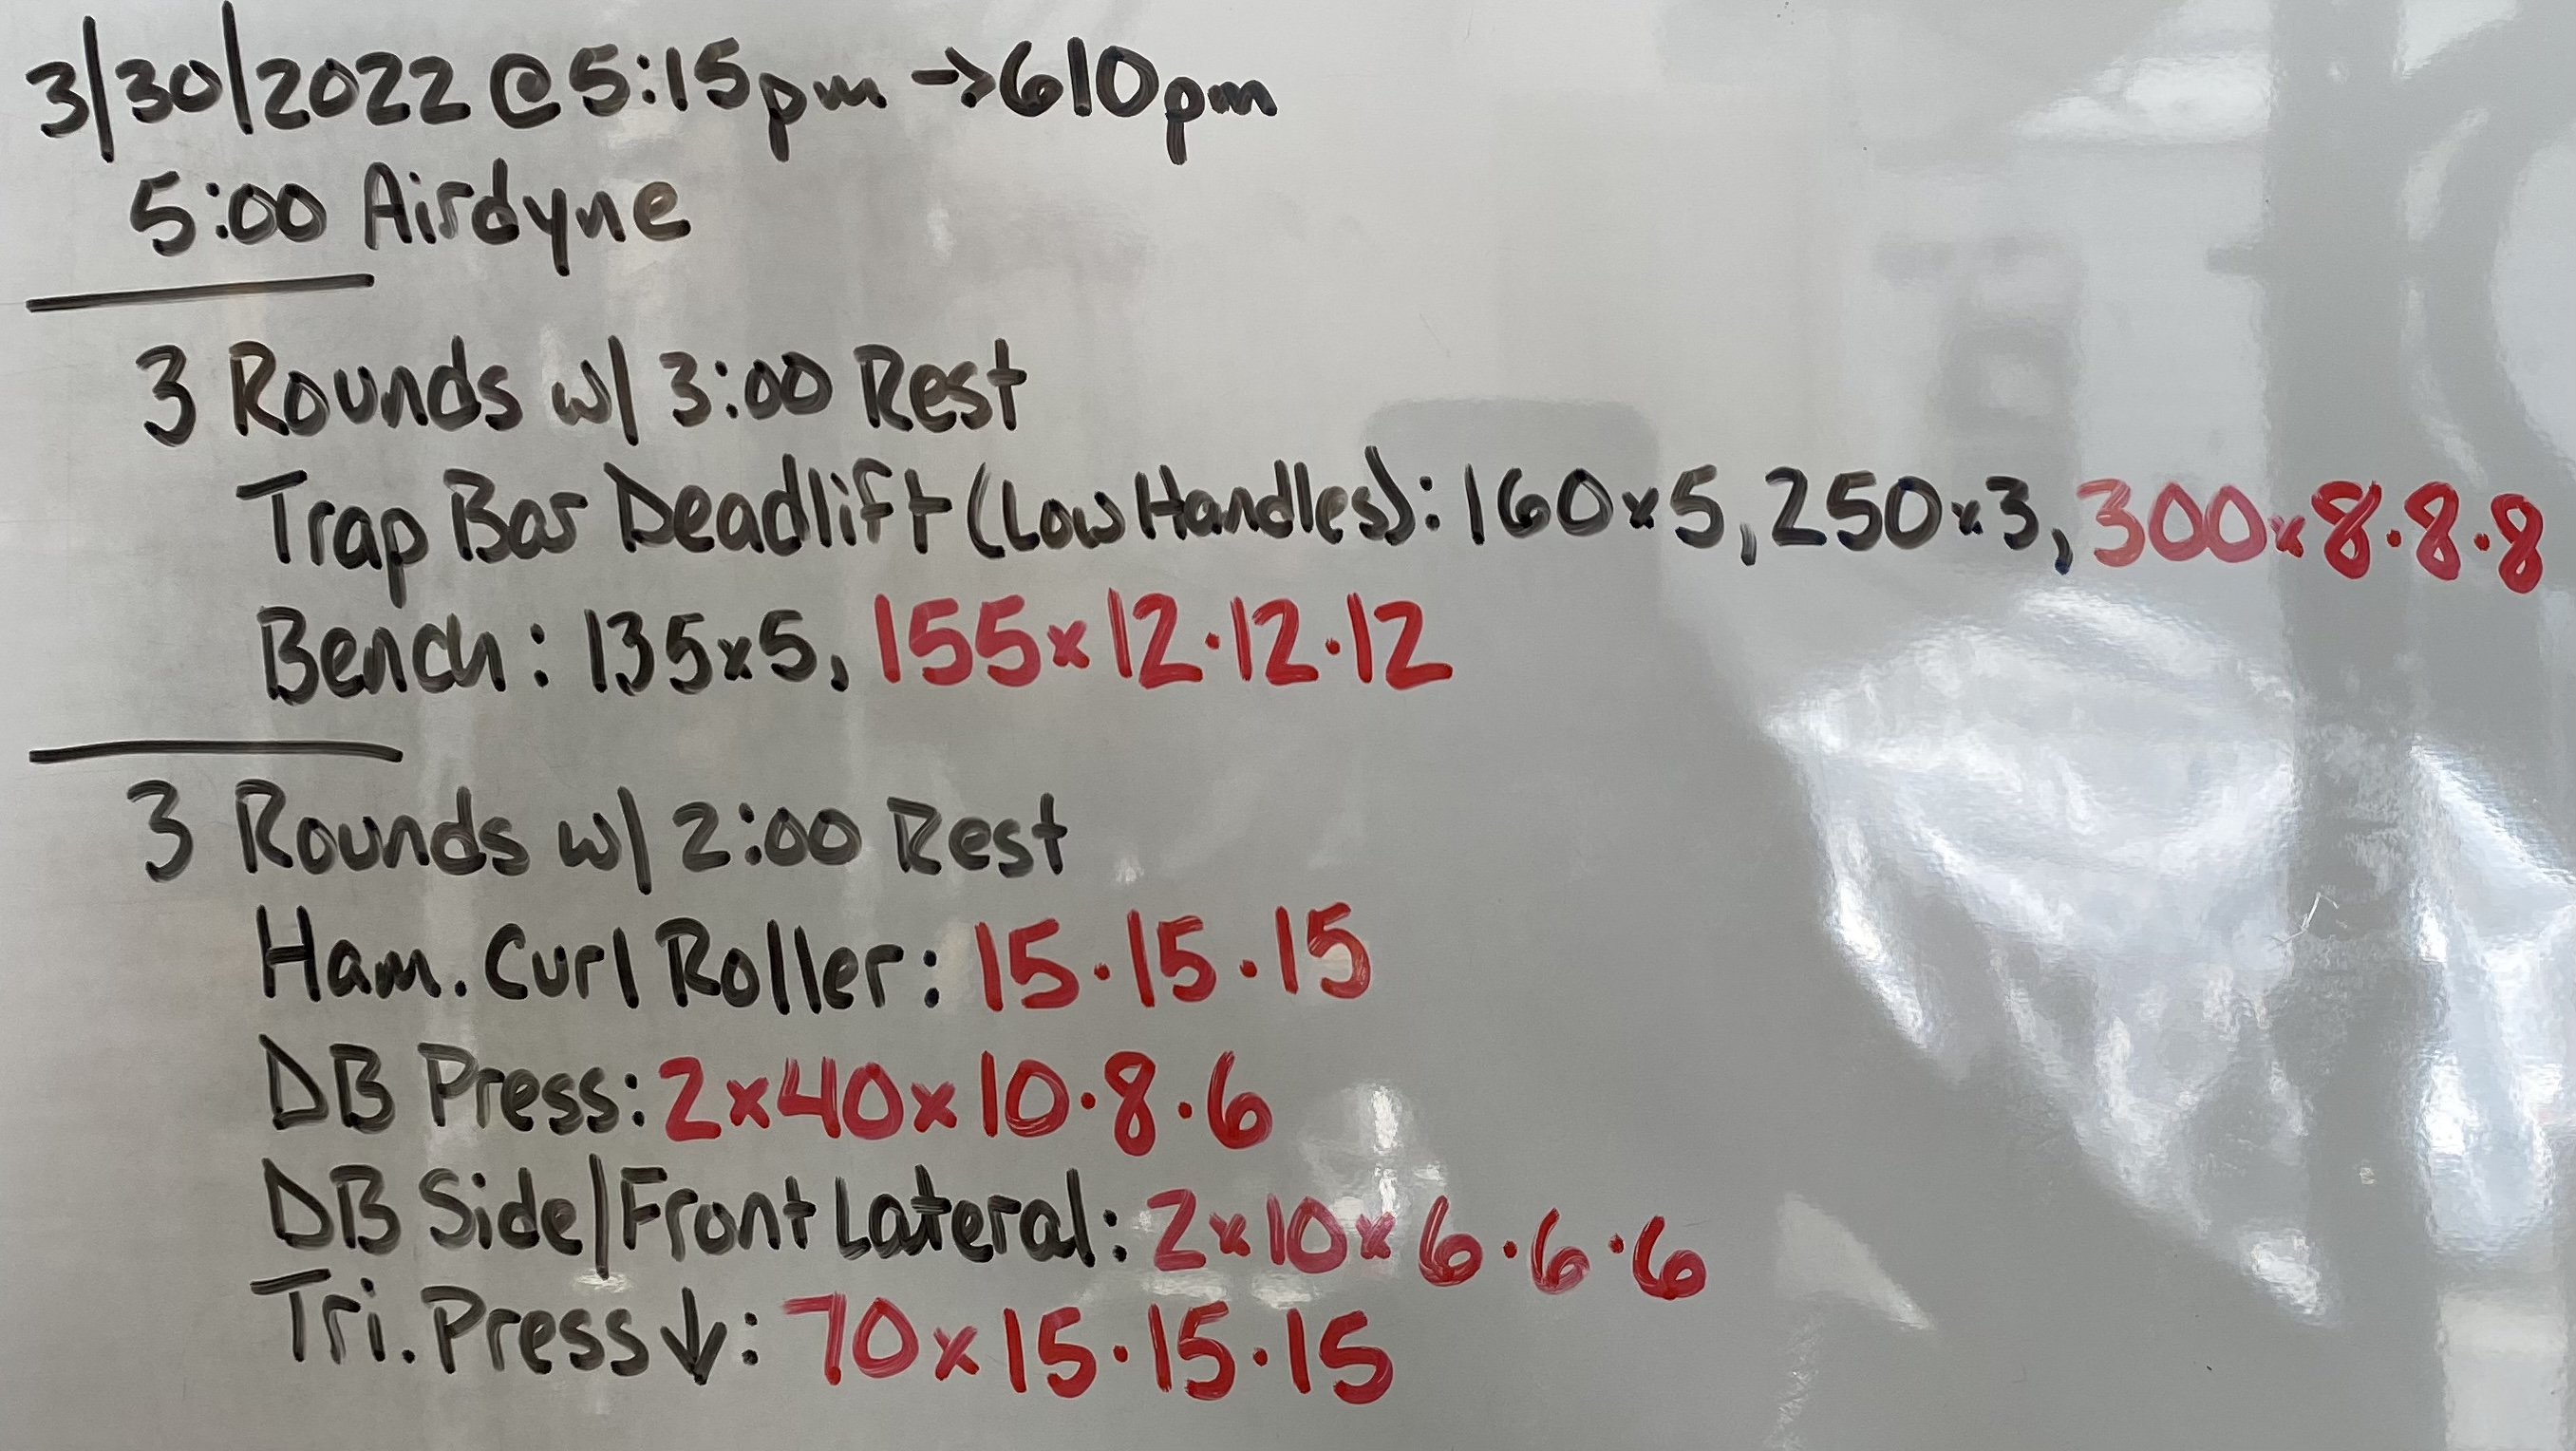 3/30/2022 @ 5:15pm → 610pm
5:00 Airdyne
3 Rounds w/ 3:00 Rest
Trap Bar Deadlift (Low Handles): 160x5, 250x3, 300x8·8·8
Bench: 135x5, 155x12·12·12
3 Rounds w/ 2:00 Rest
Ham. Curl Roller: 15·15·15
DB Press: 2x40x10·8·6
DB Side/Front Lateral: 2x10x6·6·6
Tri. Press↓: 70x15·15·15